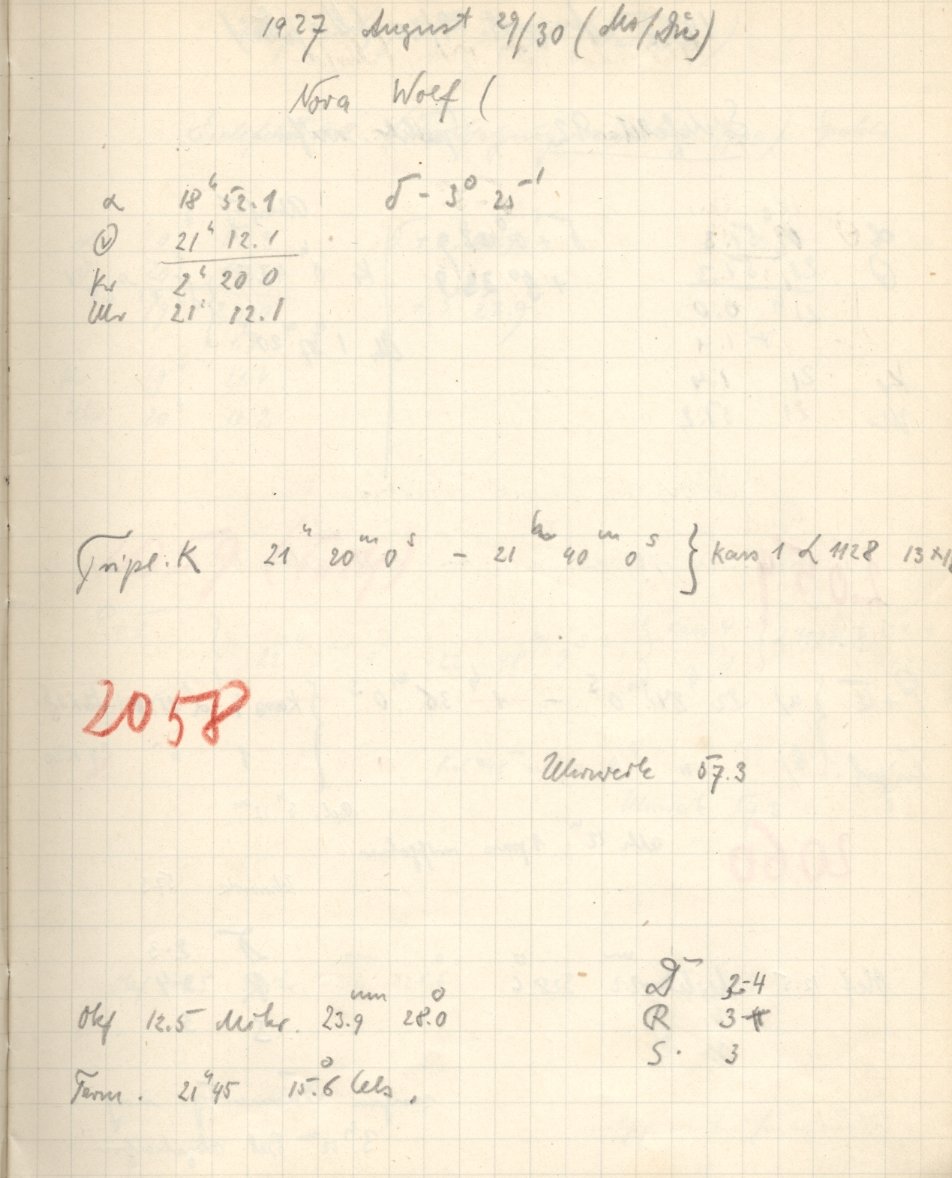 1927 August 29/30 (Mo/Die)
Nova Wolf (
α 18ʰ 52.1 δ - 3° 25'
21ʰ 12.1
Kr 2ʰ 20 0
Uhr 21ʰ 12.1
Tripl: K 21ʰ 20ᵐ 0ˢ - 21ʰ 40ᵐ 0ˢ } Kass 1 L 1128 13×18
2058
Uhrwerk 57.3
D 2-4
Okf 12.5 Mikr. 23.9 mm 28.0° R 3
S. 3
Term. 21ʰ45 15.6° Cels.